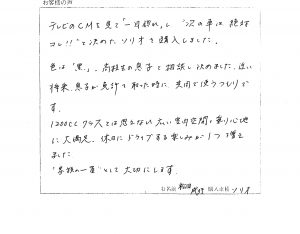 お客様の声
テレビのCMを見て「一目惚れ」し "次の車は絶対
コレ!!"と決めたソリオを購入しました。
色は「黒」。高校生の息子と相談し決めました。近い
将来、息子が免許を取った時に、共用で使うつもりで
す。
1200ccクラスとは思えない広い室内空間と乗り心地
に大満足。休日にドライブする楽しみが1つ増え
ました
"家族の一員"として大切にします。
お名前 購入車種 ソリオ